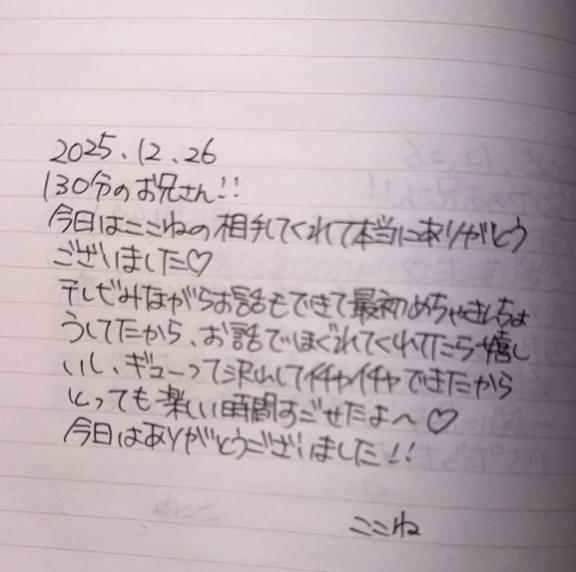 2025.12.26
130分のお兄さん!!
今日はここねの相手してくれて本当にありがとう
ございました♡
テレビみながらお話もできて最初めちゃきんちょ
うしてたから、お話でほぐれてくれてたら嬉し
いし、ギューって沢山してイチャイチャできたから
とっても楽しい時間すごせたよ〜♡
今日はありがとうございました!!
ここね